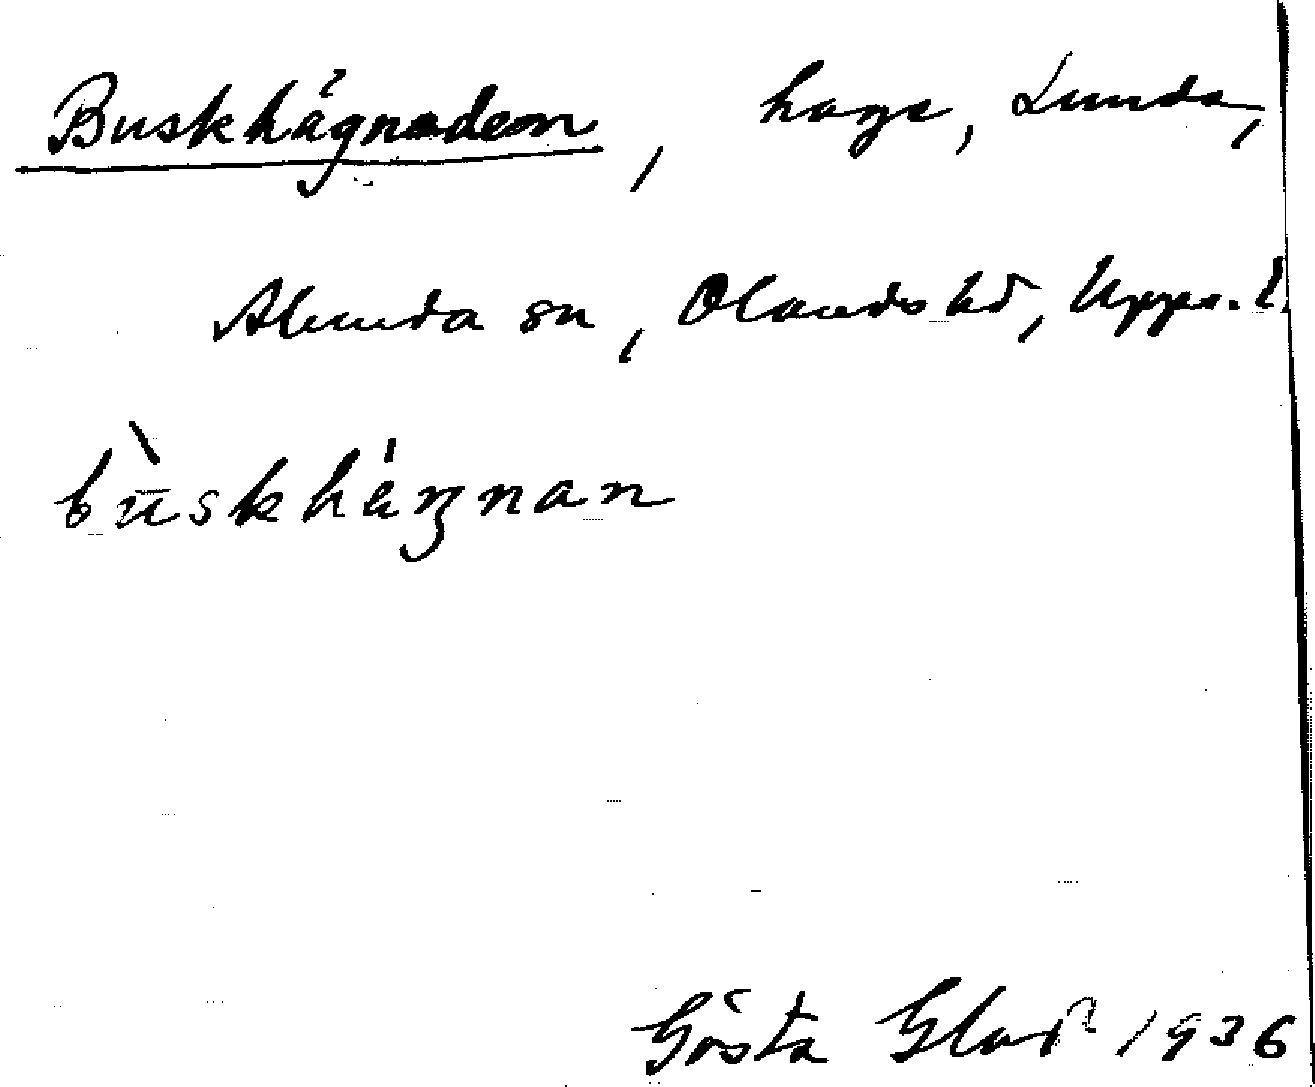 Buskhägnaden, hage, Lunda,
Alunda sn, Olands hd, Upps. l.
bùskhäŋnan
Gösta 1936